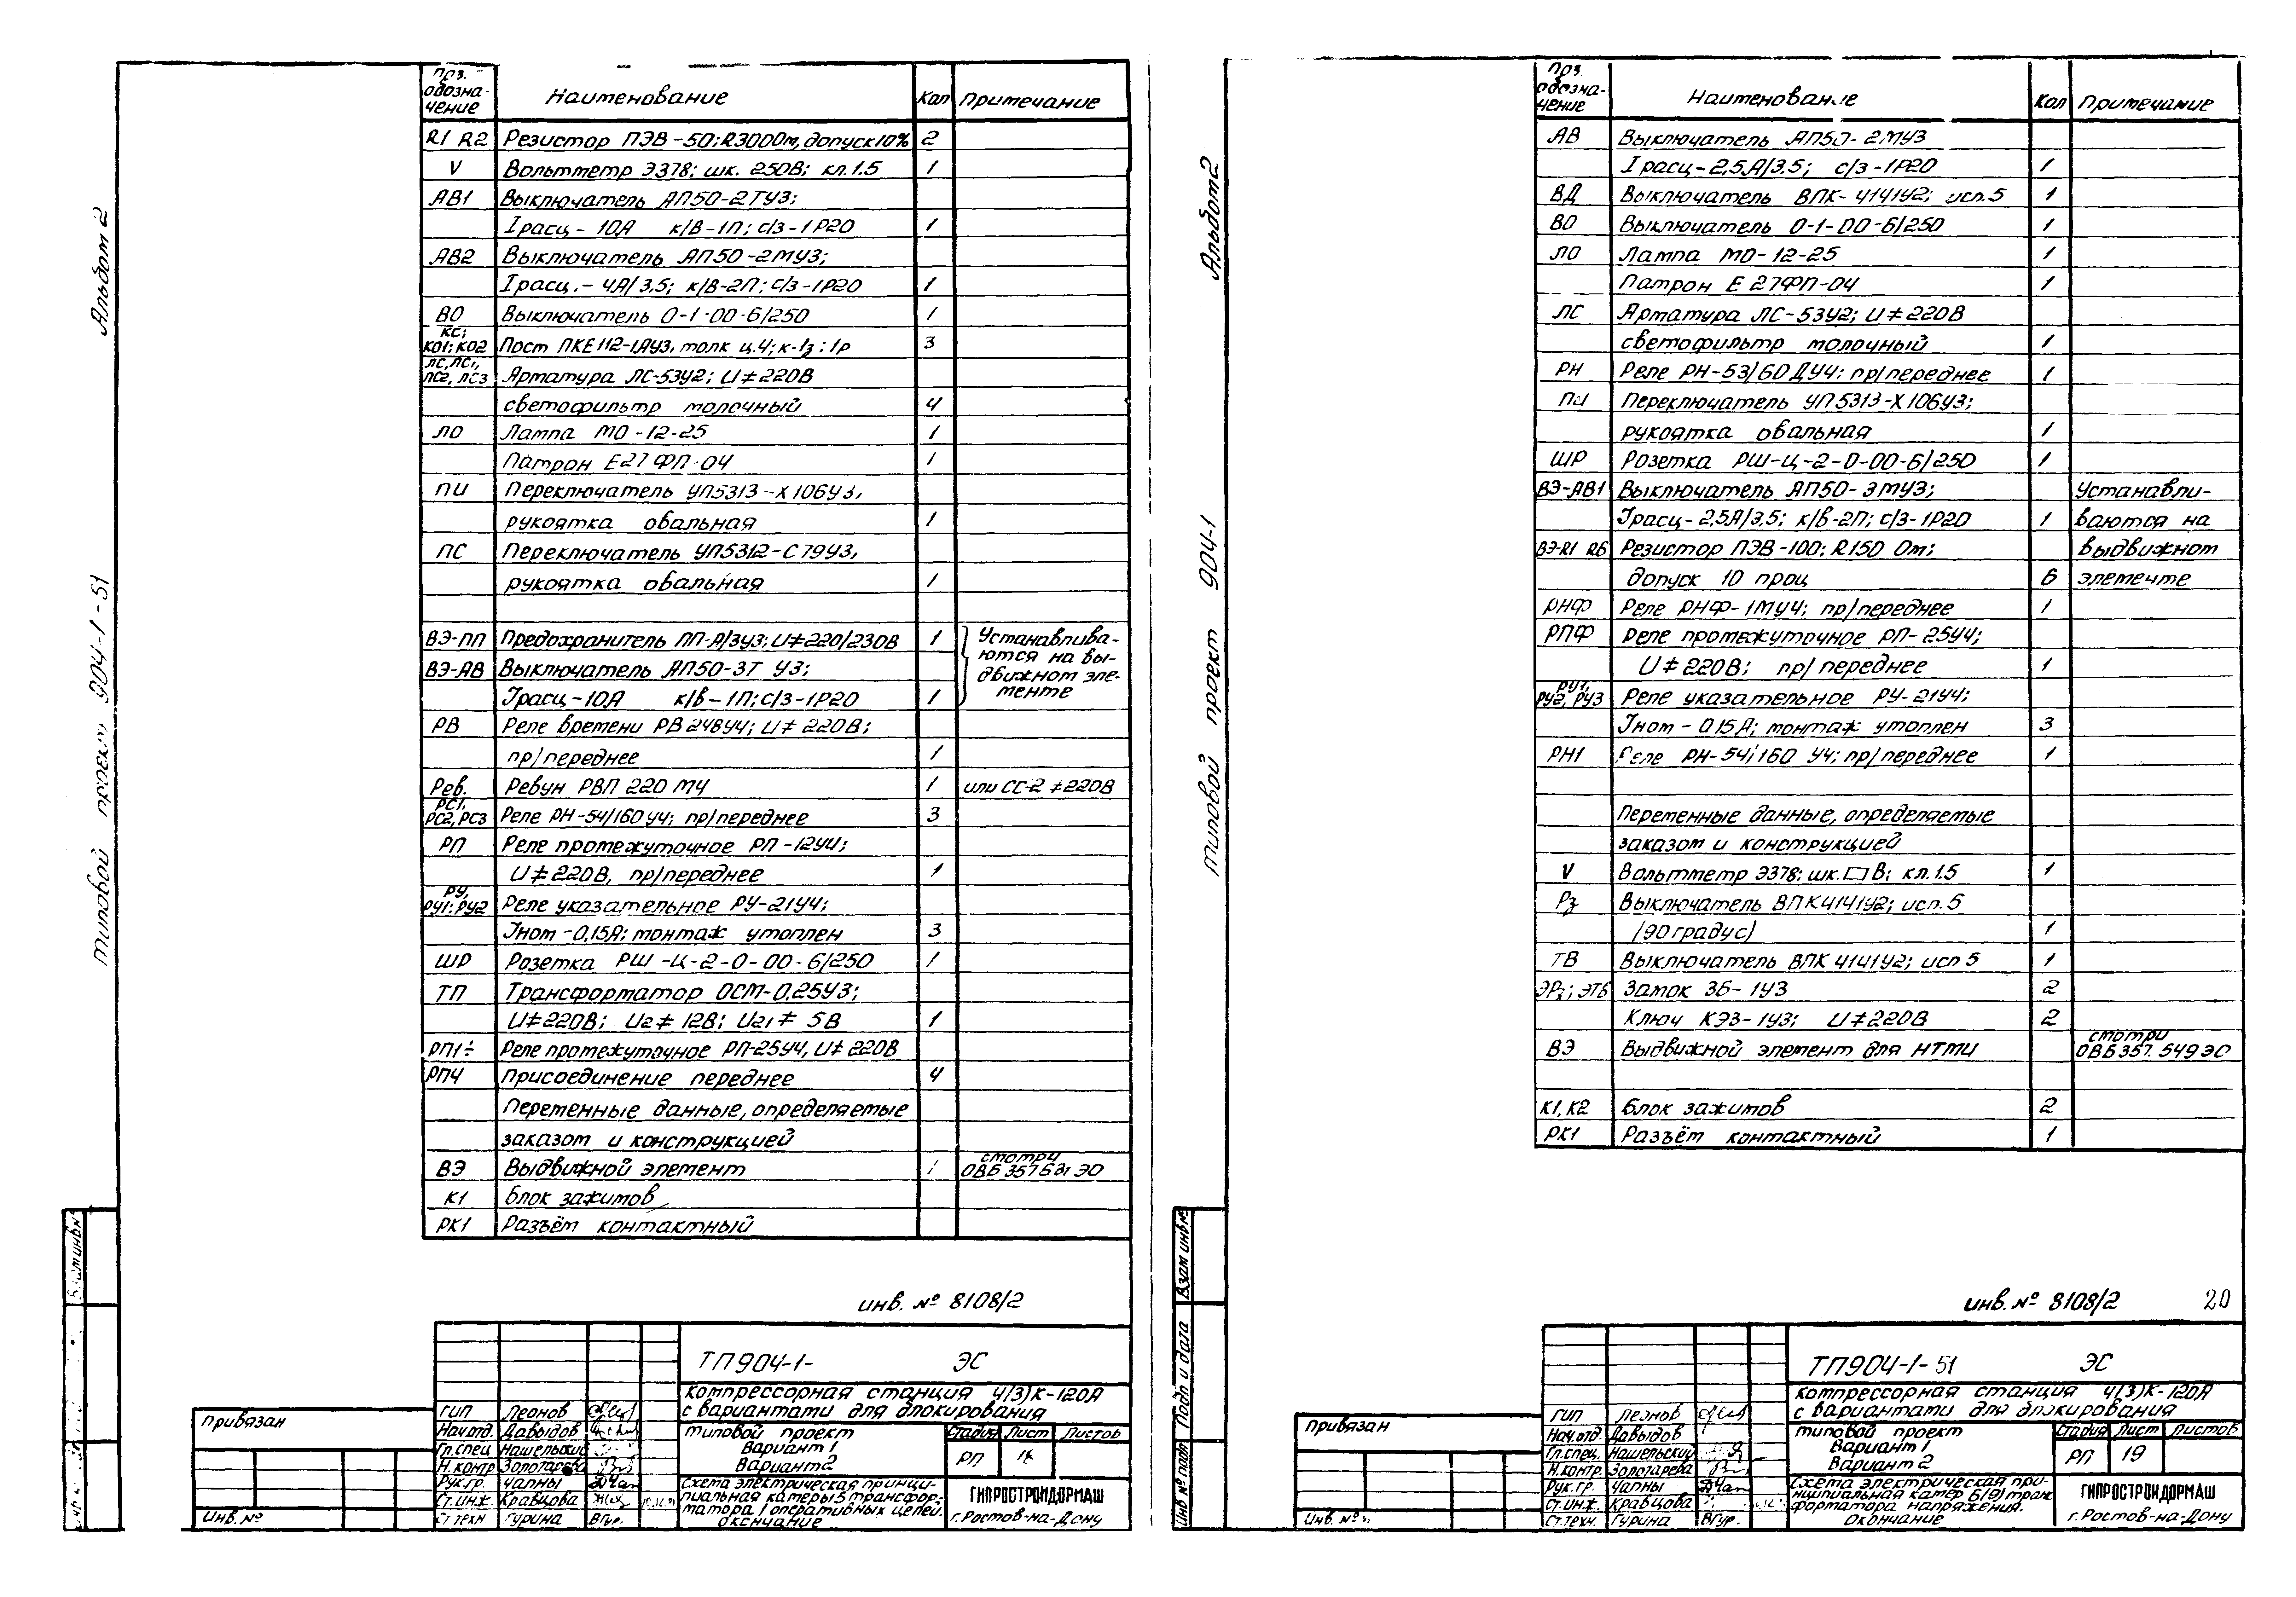 Альбом 2
Типовой проект 904-1-51
Поз. обозна-чение Наименование Кол Примечание
R1 R2 Резистор ПЭВ-50; R300Ом, допуск 10% 2
V Вольтметр Э378; шк. 250В; кл. 1.5 1
АВ1 Выключатель АП50-2ТУЗ;
Iрасц-10А к/В-1П; с/з-1Р20 1
АВ2 Выключатель АП50-2МУЗ;
Iрасц.-4А/3,5; к/В-2П; с/з-1Р20 1
ВО Выключатель 0-1-00-6/250 1
КС; КО1; КО2 Пост ПКЕ 112-1АУЗ, толк ц.4; к-1з; 1р 3
ЛС, ЛС1, ЛС2, ЛС3 Арматура ЛС-53У2; U≠220В
светофильтр молочный 4
ЛО Лампа МО-12-25 1
Патрон Е27 ФП-04 1
ПИ Переключатель УП5313-Х106УЗ,
рукоятка овальная 1
ПС Переключатель УП5312-С79УЗ,
рукоятка овальная 1
ВЭ-ПП Предохранитель ПП-А/3УЗ; U≠220/230В 1 Устанавлива-
ются на вы-
ВЭ-АВ Выключатель АП50-3Т УЗ;
движном эле-
Iрасц-10А к/в-1П; с/з-1Р20 1 менте
РВ Реле времени РВ248У4; U≠220В;
пр/переднее 1
Рев. Ревун РВП 220 М4 1 или СС-2 ≠220В
РС1, РС2, РС3 Реле РН-54/160 У4; пр/переднее 3
РП Реле промежуточное РП-12У4;
U≠220В, пр/переднее 1
РУ, РУ1; РУ2 Реле указательное РУ-21У4;
Iном-0,15А; монтаж утоплен 3
ШР Розетка РШ-Ц-2-0-00-6/250 1
ТП Трансформатор ОСМ-0,25УЗ;
U≠220В; U2≠12В; U21≠5В 1
РП1÷ Реле промежуточное РП-25У4, U≠220В
РП4 Присоединение переднее 4
Переменные данные, определяемые
заказом и конструкцией
ВЭ Выдвижной элемент 1 смотри ОВБ 357 631 ЭО
К1 Блок зажимов
РК1 Разъём контактный
инв. № 8108/2
ТП904-1- ЭС
Компрессорная станция 4(3)К-120А
с вариантами для блокирования
Привязан
Инв. №
ГИП Леонов
Нач.отд. Давыдов
Гл.спец Нашельский
Н.контр Золотарева
Рук.гр. Чапны
Ст.инж. Кравцова
Ст.техн. Гурина
Типовой проект
Вариант 1
Вариант 2
Стадия Лист Листов
РП
Схема электрическая принци-
пиальная камеры 5 трансфор-
матора / оперативных цепей.
Окончание
ГИПРОСТРОЙДОРМАШ
г. Ростов-на-Дону
Альбом 2
Типовой проект 904-1
Взам инв №
Подп и дата
Инв № подл
Поз обозна-чение Наименование Кол Примечание
АВ Выключатель АП50-2МУЗ
Iрасц-2,5А/3,5; с/з-1Р20 1
ВД Выключатель ВПК-4141У2; исп. 5 1
ВО Выключатель 0-1-00-6/250 1
ЛО Лампа МО-12-25 1
Патрон Е 27ФП-04 1
ЛС Арматура ЛС-53У2; U≠220В
светофильтр молочный 1
РН Реле РН-53/60 ДУ4; пр/переднее 1
ПИ Переключатель УП5313-Х106УЗ;
рукоятка овальная 1
ШР Розетка РШ-Ц-2-0-00-6/250 1
ВЭ-АВ1 Выключатель АП50-3МУЗ; Устанавли-
Iрасц-2,5А/3,5; к/в-2П; с/з-1Р20 1 ваются на
ВЭ-R1 R6 Резистор ПЭВ-100; R150 Ом; выдвижном
допуск 10 проц 6 элементе
РНФ Реле РНФ-1МУ4; пр/переднее 1
РПФ Реле промежуточное РП-25У4;
U≠220В; пр/переднее 1
РУ1, РУ2, РУ3 Реле указательное РУ-21У4;
Iном-0,15А; монтаж утоплен 3
РН1 Реле РН-54/160 У4; пр/переднее 1
Переменные данные, определяемые
заказом и конструкцией
V Вольтметр Э378; шк. □ В; кл. 1.5 1
Рз Выключатель ВПК4141У2; исп. 5
/90градус/ 1
ТВ Выключатель ВПК 4141У2; исп 5 1
ЭРз; ЭТБ Замок ЗБ-1УЗ 2
Ключ КЭЗ-1УЗ; U≠220В 2
ВЭ Выдвижной элемент для НТМИ смотри ОВБ 357. 549 ЭО
К1, К2 Блок зажимов 2
РК1 Разъём контактный 1
инв. № 8108/2 20
ТП904-1-51 ЭС
Компрессорная станция 4(3)К-120А
с вариантами для блокирования
Привязан
Инв. №
ГИП Леонов
Нач.отд. Давыдов
Гл.спец. Нашельский
Н.контр. Золотарева
Рук.гр. Чапны
Ст.инж. Кравцова
Ст.техн. Гурина
Типовой проект
Вариант 1
Вариант 2
Стадия Лист Листов
РП 19
Схема электрическая при-
нципиальная камер 6(9) транс
форматора напряжения.
Окончание
ГИПРОСТРОЙДОРМАШ
г. Ростов-на-Дону